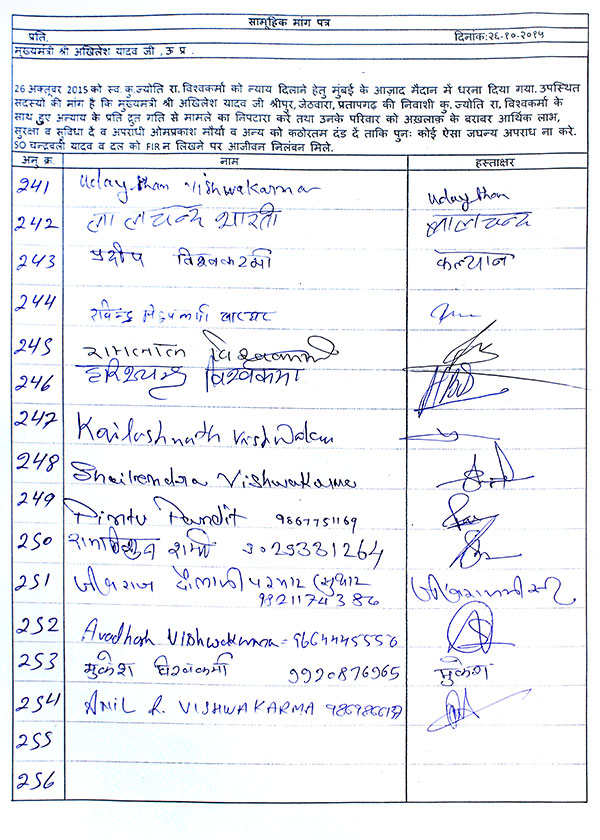 सामूहिक मांग पत्र
प्रति, दिनांक:२६-१०-२०१५
मुख्यमंत्री श्री अखिलेश यादव जी ,ऊ प्र .
26 अक्तूबर 2015 को स्व. कु.ज्योति रा. विश्वकर्मा को न्याय दिलाने हेतु मुंबई के आज़ाद मैदान में धरना दिया गया. उपस्थित
सदस्यों की मांग है कि मुख्यमंत्री श्री अखिलेश यादव जी श्रीपुर, जेठवारा, प्रतापगढ़ की निवाशी कु. ज्योति रा, विश्वकर्मा के
साथ हुए अन्याय के प्रति द्रुत गति से मामले का निपटारा करें तथा उनके परिवार को अख़लाक़ के बराबर आर्थिक लाभ,
सुरक्षा व सुविधा दें व अपराधी ओमप्रकाश मौर्या व अन्य को कठोरतम दंड दें ताकि पुनः कोई ऐसा जघन्य अपराध ना करे.
SO चन्द्रबली यादव व दल को FIR न लिखने पर आजीवन निलंबन मिले.
अनु क्र. नाम हस्ताक्षर
241 Uday bhan Vishwakarma Uday bhan
242 लालचन्द भारती लालचन्द
243 प्रदीप विश्वकर्मा कल्यान
244 रविन्द्र
245 रामलाल विश्वकर्मा
246 हरिश्चन्द्र विश्वकर्मा
247 Kailashnath Vishwakar
248 Shailendra Vishwakarma
249 Pintu Pandit 9867751169
250 शर्मा 3025331264
251 परमार (सुथार
9821174386
252 Avadhesh Vishwakarma - 9664445556
253 मुकेश विश्वकर्मा 9920876965 मुकेश
254 ANIL R. VISHWAKARMA
255
256